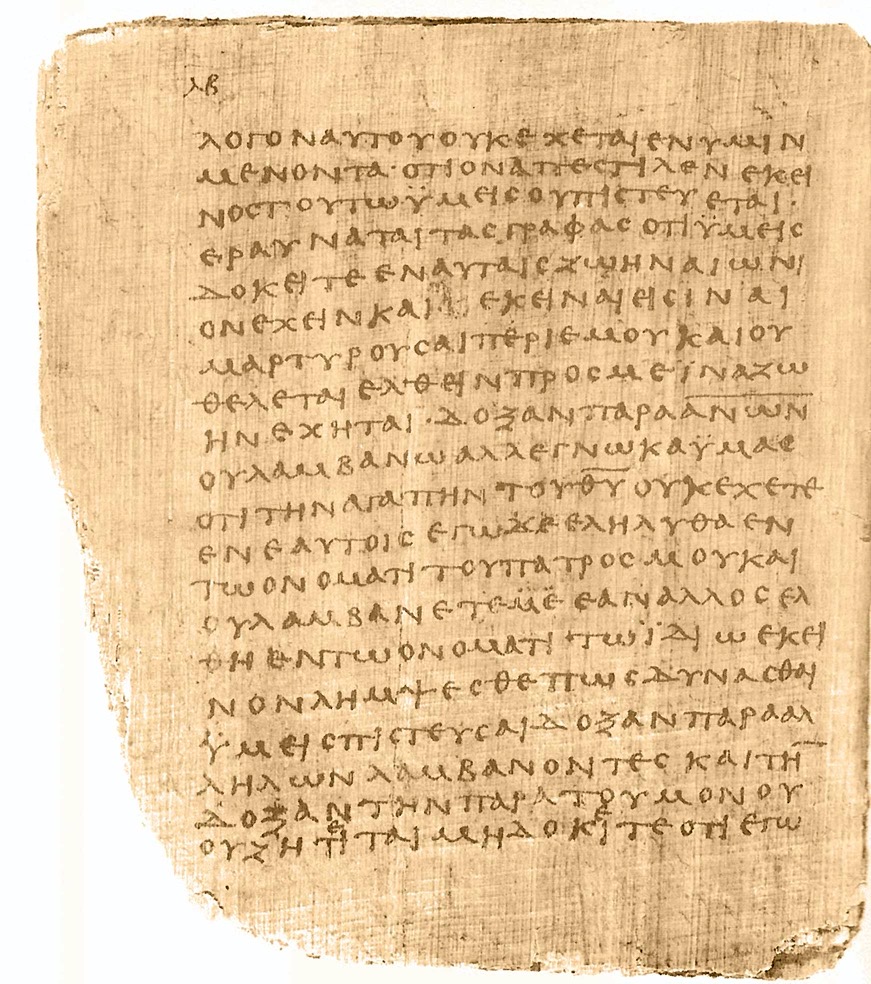 λβ
λογοναυτουουκεχεταιενυμιν
μενοντα·οτιοναπεστιλενεκει
νοστουτωϋμεισουπιστευεται·
εραυναταιτασγραφασοτιϋμεισ
δοκειτεεναυταισζωηναιωνι
ονεχεινκαιεκειναιεισιναι
μαρτυρουσαιπεριεμουκαιου
θελεταιελθεινπροσμεϊναζω
ηνεχηται·δοξανπαρααν̅ω̅ν̅
ουλαμβανωαλλεγνωκαϋμας
οτιτηναγαπηντουθ̅υ̅ουκεχετε
ενεαυτοισεγωδεεληλυθαεν
τωονοματιτουπατροσμουκαι
ουλαμβανετεμεεαναλλοσελ
θηεντωονοματιτωϊδιωεκει
νονλημψεσθεπωσδυνασθαι
ϋμεισπιστευσαιδοξανπαρααλ
ληλωνλαμβανοντεσκαιτη̅
δοξαντηνπαρατουμονου
ουζητειταιμηδοκειτεοτιεγω